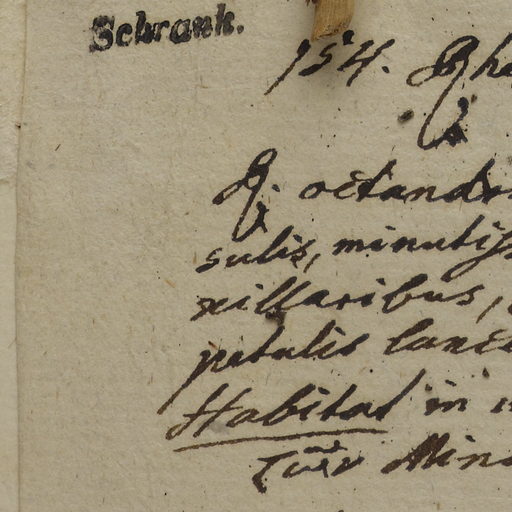 Schrank.
154. Rha
R. octandr
sulis, minutiss
xillaribus,
petalis lance
Habitat in
Minas